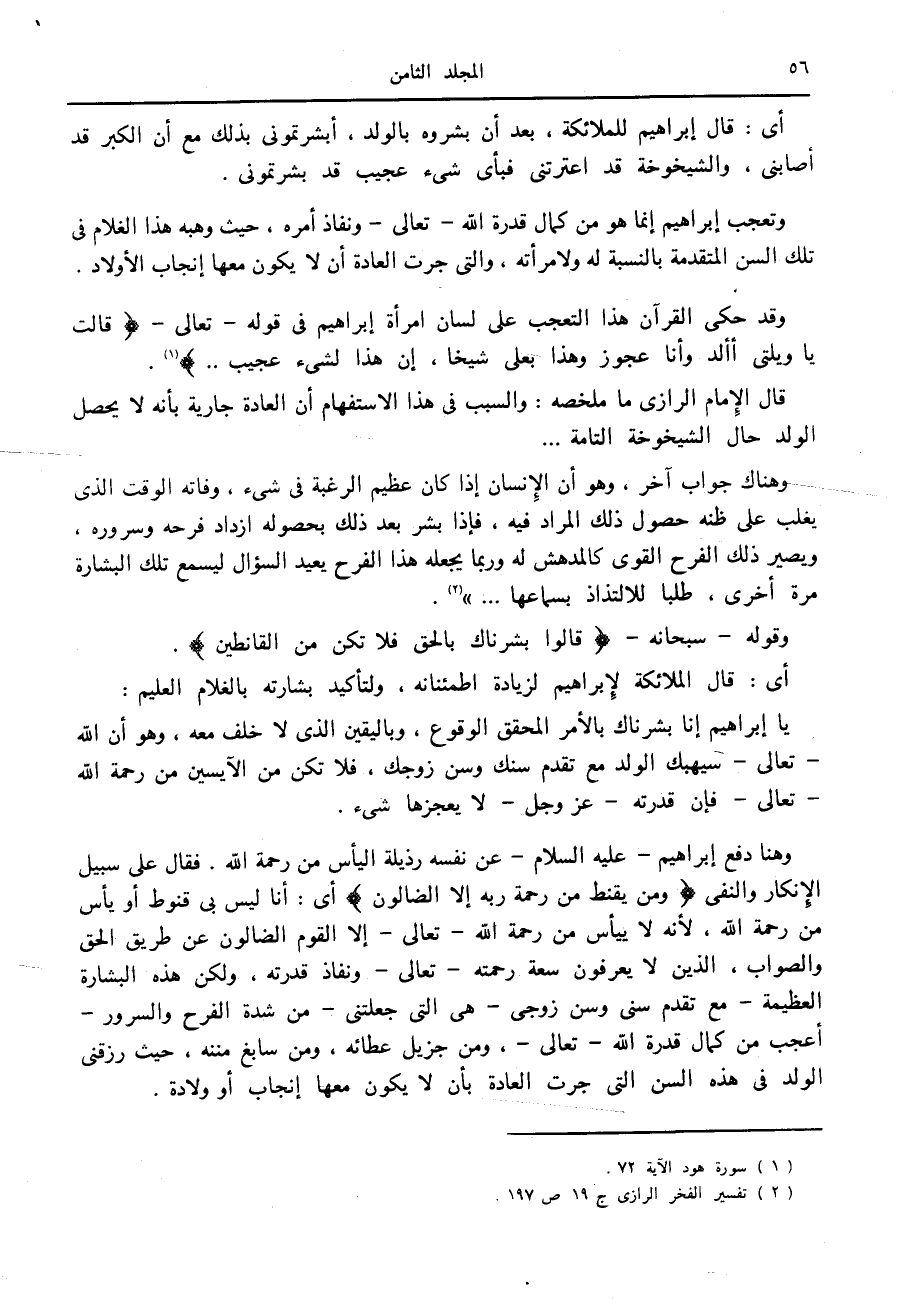 ٥٦
المجلد الثامن
أى : قال إبراهيم للملائكة ، بعد أن بشروه بالولد ، أبشرتمونى بذلك مع أن الكبر قد
أصابنى ، والشيخوخة قد اعترتنى فبأى شىء عجيب قد بشرتمونى .
وتعجب إبراهيم إنما هو من كمال قدرة الله – تعالى – ونفاذ أمره ، حيث وهبه هذا الغلام فى
تلك السن المتقدمة بالنسبة له ولامرأته ، والتى جرت العادة أن لا يكون معها إنجاب الأولاد .
وقد حكى القرآن هذا التعجب على لسان امرأة إبراهيم فى قوله – تعالى – ﴿ قالت
يا ويلتى أألد وأنا عجوز وهذا بعلى شيخا ، إن هذا لشىء عجيب .. ﴾(١) .
قال الإمام الرازى ما ملخصه : والسبب فى هذا الاستفهام أن العادة جارية بأنه لا يحصل
الولد حال الشيخوخة التامة ...
وهناك جواب آخر ، وهو أن الإنسان إذا كان عظيم الرغبة فى شىء ، وفاته الوقت الذى
يغلب على ظنه حصول ذلك المراد فيه ، فإذا بشر بعد ذلك بحصوله ازداد فرحه وسروره ،
ويصير ذلك الفرح القوى كالمدهش له وربما يجعله هذا الفرح يعيد السؤال ليسمع تلك البشارة
مرة أخرى ، طلبا للالتذاذ بسماعها ... »(٢) .
وقوله – سبحانه – ﴿ قالوا بشرناك بالحق فلا تكن من القانطين ﴾ .
أى : قال الملائكة لإبراهيم لزيادة اطمئنانه ، ولتأكيد بشارته بالغلام العليم :
يا إبراهيم إنا بشرناك بالأمر المحقق الوقوع ، وباليقين الذى لا خلف معه ، وهو أن الله
– تعالى – سيهبك الولد مع تقدم سنك وسن زوجك ، فلا تكن من الآيسين من رحمة الله
– تعالى – فإن قدرته – عز وجل – لا يعجزها شىء .
وهنا دفع إبراهيم – عليه السلام – عن نفسه رذيلة اليأس من رحمة الله . فقال على سبيل
الإنكار والنفى ﴿ ومن يقنط من رحمة ربه إلا الضالون ﴾ أى : أنا ليس بى قنوط أو يأس
من رحمة الله ، لأنه لا ييأس من رحمة الله – تعالى – إلا القوم الضالون عن طريق الحق
والصواب ، الذين لا يعرفون سعة رحمته – تعالى – ونفاذ قدرته ، ولكن هذه البشارة
العظيمة – مع تقدم سنى وسن زوجى – هى التى جعلتنى – من شدة الفرح والسرور –
أعجب من كمال قدرة الله – تعالى – ، ومن جزيل عطائه ، ومن سابغ مننه ، حيث رزقنى
الولد فى هذه السن التى جرت العادة بأن لا يكون معها إنجاب أو ولادة .
( ١ ) سورة هود الآية ٧٢ .
( ٢ ) تفسير الفخر الرازى ج ١٩ ص ١٩٧ .